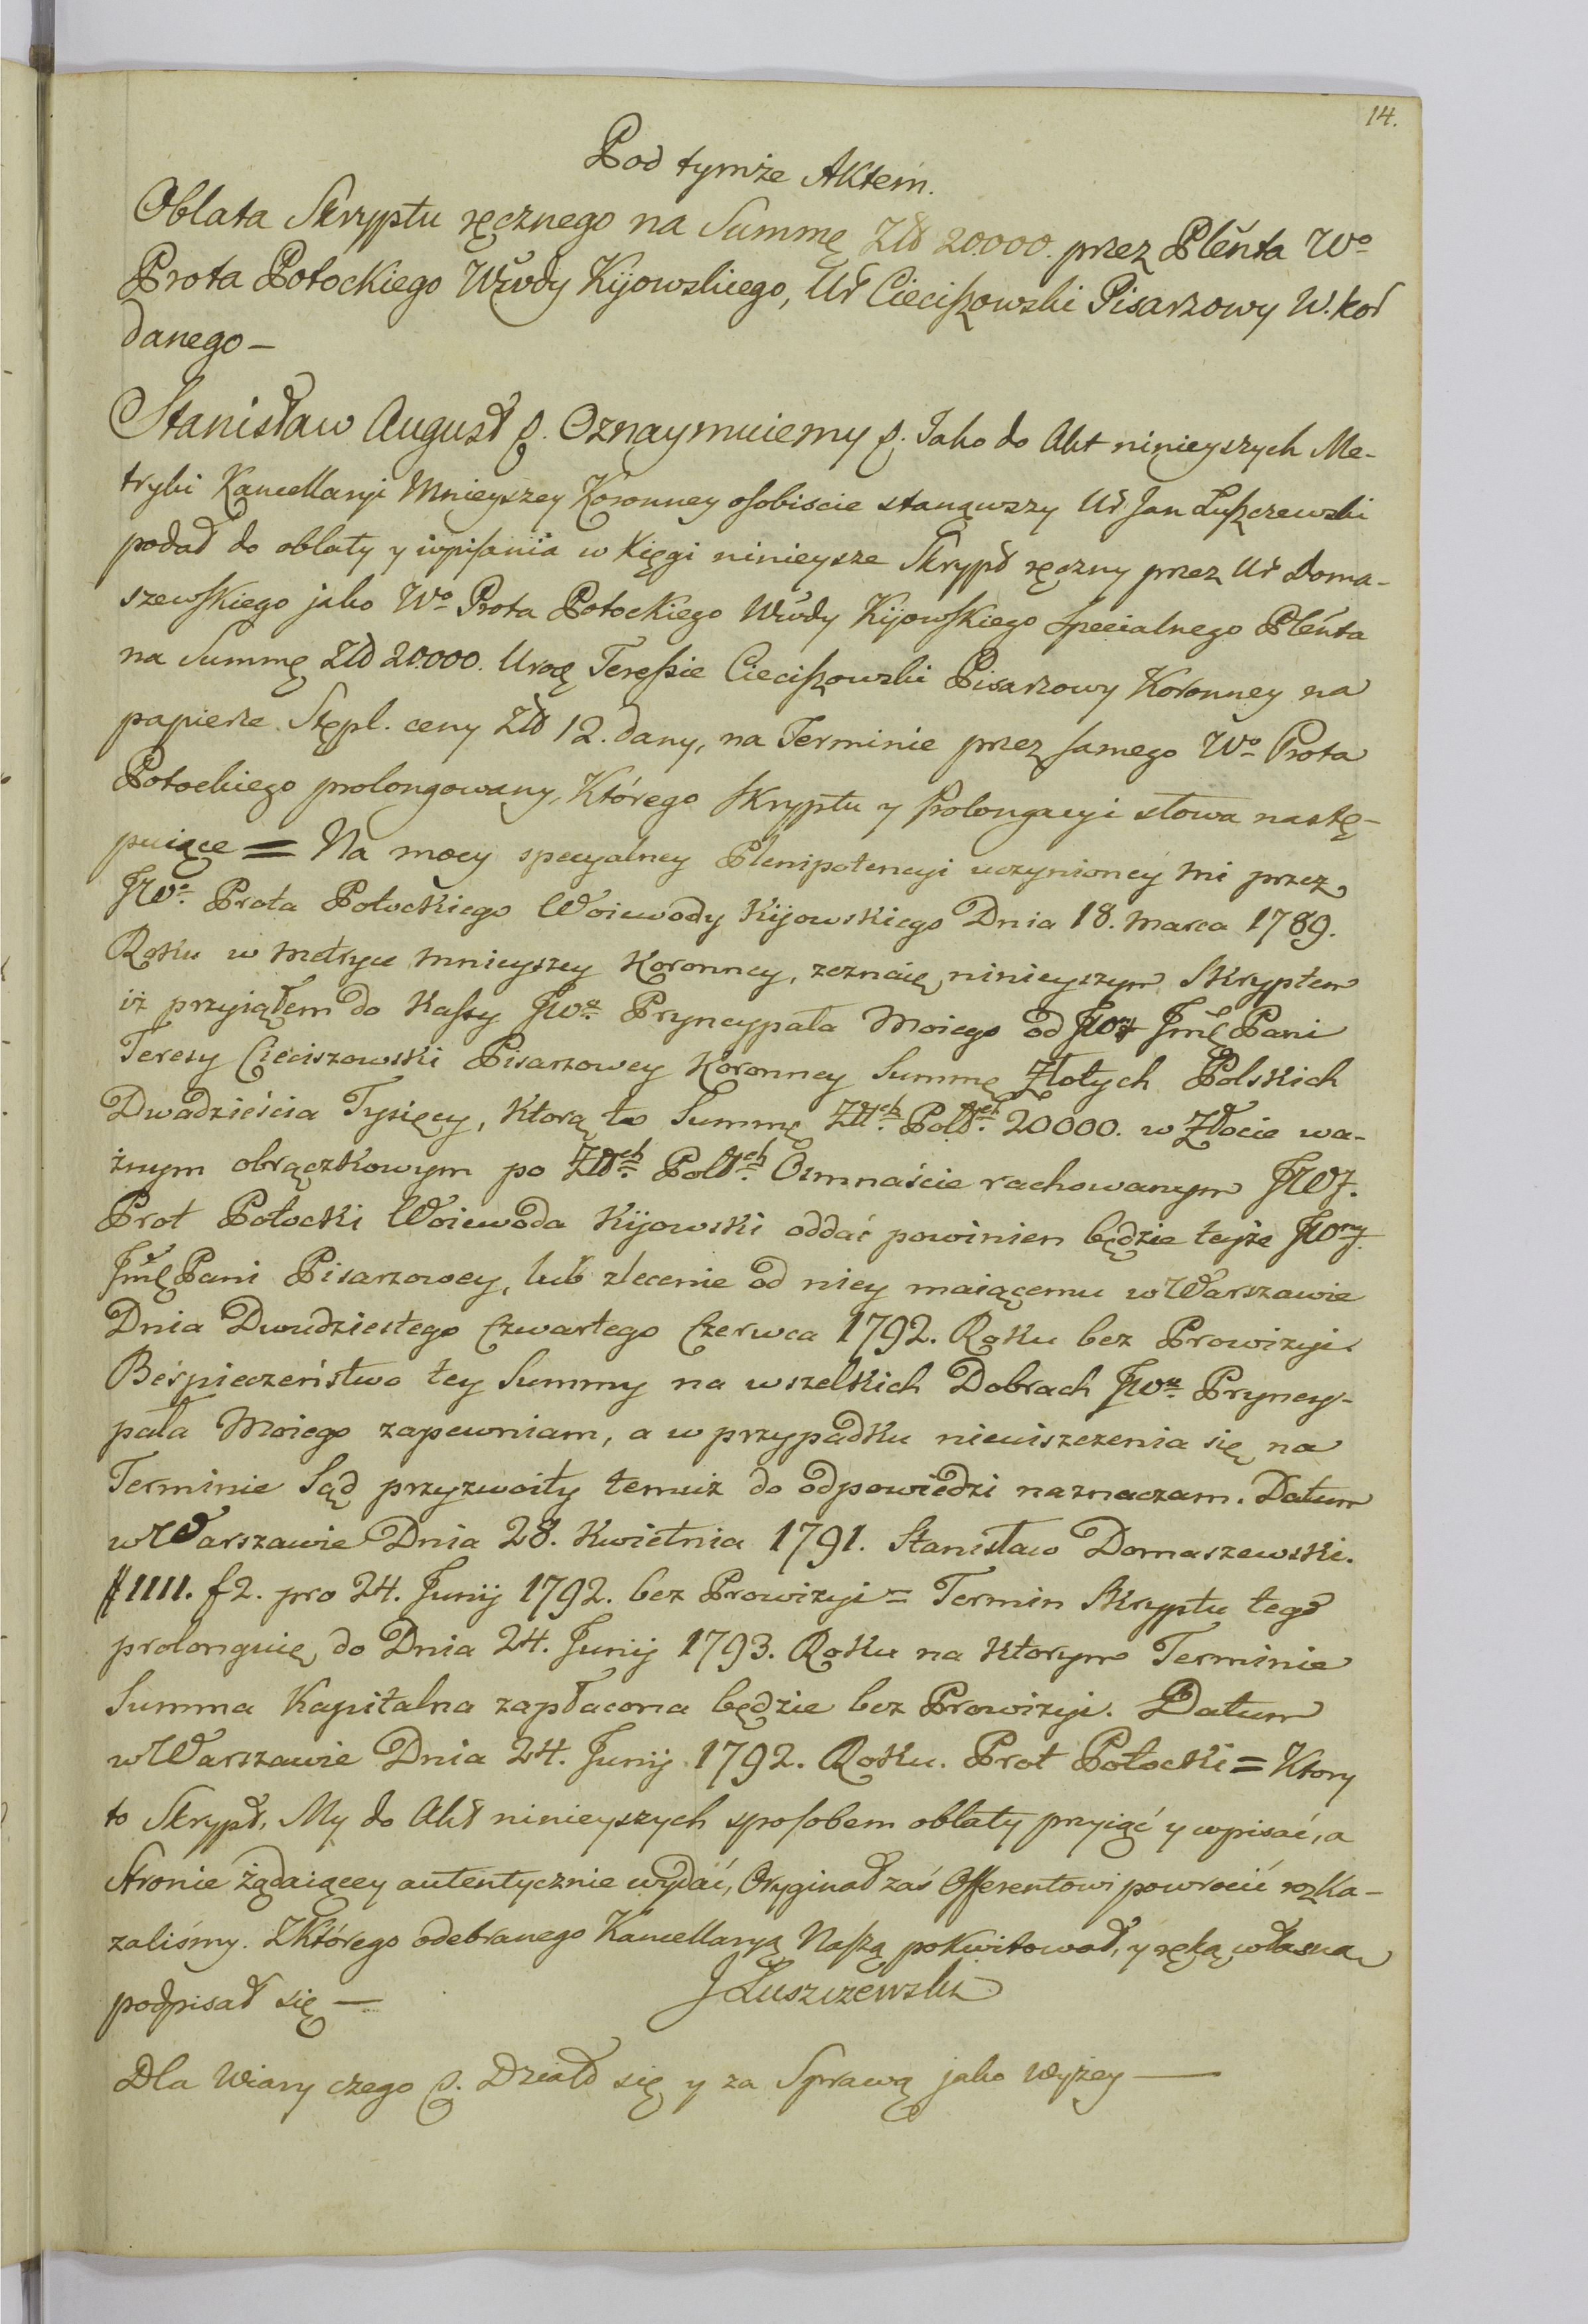 14.
Pod tymże Aktem.
Oblata Skryptu ręcznego na Summę Złł 20.000. przez Plenta Wo
Prota Potockiego Wwdy Kijowskiego, Ur Cieciszowski Pisarzowy W. kor
danego —
Stanisław August p. Oznaymuiemy p. Jako do Akt ninieyszych Me-
tryki Kancellaryi Mnieyszey Koronney osobiscie stanąwszy Ur Jan Luszczewski
podał do oblaty y wpisania w Xięgi ninieysze Skrypt ręczny przez Ur Doma-
szewskiego jako Wo Prota Potockiego Wwdy Kijowskiego specialnego Plenta
na Summę Złł 20.000. Urog Teressie Cieciszowski Pisarzowy Koronney na
papierze Stępl. ceny Złł 12. dany, na Terminie przez samego Wo Prota
Potockiego prolongowany, Którego skryptu y Prolongacyi słowa nastę-
puiące = Na mocy specyalney Plenipotencyi uczynioney mi przez
JWo Prota Potockiego Woiewody Kijowskiego Dnia 18. Marca 1789.
Roku w Metryce Mnieyszey Koronney, zeznaię ninieyszym Skryptem
iż przyiąłem do Kassy JWo Pryncypała Moiego od JWJ Jmę Pani
Teresy Cieciszowski Pisarzowey Koronney Summę Złotych Polskich
Dwadzieścia Tysięcy, Którą to Summę Złłch Polłch 20000. w Złocie wa-
żnym obrączkowym po Złłch Polłch Osmnaście rachowanym JWJ.
Prot Potocki Woiewoda Kijowski oddać powinien będzie teyże JWny
Jmę Pani Pisarzowey, lub zlecenie od niey maiącemu w Warszawie
Dnia Dwudziestego Czwartego Czerwca 1792. Roku bez Prowizyi.
Beśpieczeństwo tey Summy na wszelkich Dobrach JWo Pryncy-
pała Moiego zapewniam, a w przypadku nieuiszczenia się na
Terminie Sąd przyzwoity temuż do odpowiedzi naznaczam. Datum
w Warszawie Dnia 28. Kwietnia 1791. Stanisław Domaszewski.
# 1111. f 2. pro 24. Junij 1792. bez Prowizyi = Termin Skryptu tego
prolonguię do Dnia 24. Junij 1793. Roku na Ktorym Terminie
Summa Kapitalna zapłacona będzie bez Prowizyi. Datum
w Warszawie Dnia 24. Junij 1792. Roku. Prot Potocki = Ktory
to Skrypt, My do Akt ninieyszych sposobem oblaty przyiąć y wpisać, a
Stronie żądaiącey autentycznie wydać, Oryginał zaś Offerentowi powrocić rozka-
zaliśmy. Z Którego odebranego Kancellaryą Naszą pokwitował, y ręką własną
podpisał się —
J Luszczewski
Dla Wiary czego p. Działo się y za Sprawą jako wyżey —